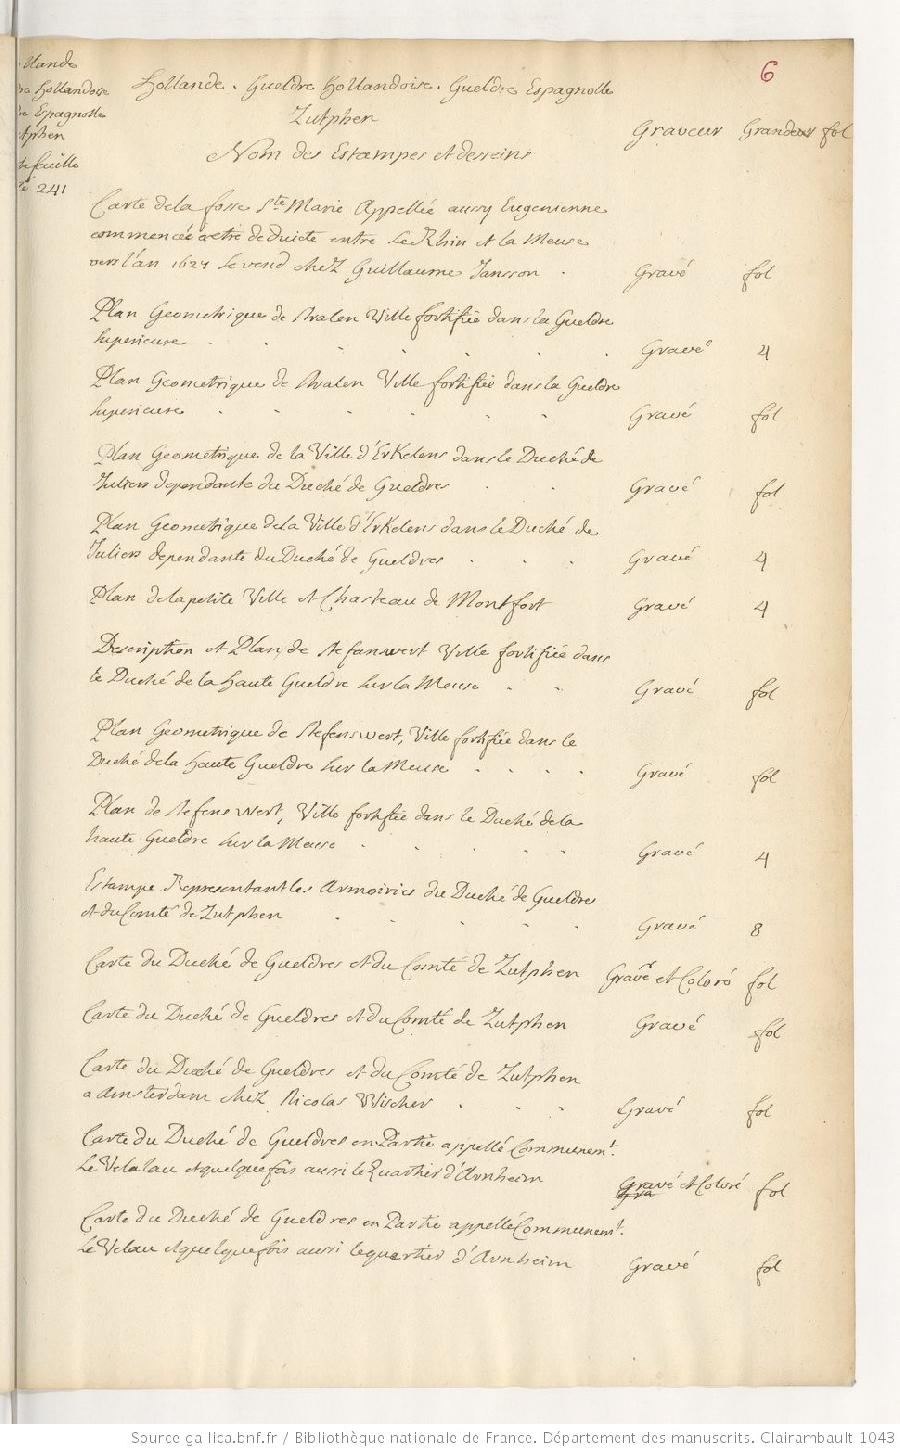 6
llande
Hollandoise
Espagnolle
tphen
tefeuille
241
Hollande. Gueldre Hollandoise. Gueldre Espagnolle
Zutphen
Graveur Grandeur fol
Nom des Estampes et desseins
Carte de la fosse Ste Marie Appellée aussy Eugenienne
commencée entre le Rhin et la Meuse
vers l'an 1627 se vend chez Guillaume Jansson . Gravé fol
Plan Geometrique de Walen Ville fortifiée dans la Gueldre
superieure Gravé 4
Plan Geometrique de Walen Ville fortifiée dans la Gueldre
superieure Gravé fol
Plan Geometrique de la Ville d'Erkelens dans le Duché de
Juliers dependante du Duché de Gueldres Gravé fol
Plan Geometrique de la Ville d'Erkelens dans le Duché de
Juliers dependante du Duché de Gueldres Gravé 4
Plan de la petite Ville et Chasteau de Montfort Gravé 4
Description et Plan de Stefanwert Ville fortifiée dans
le Duché de la haute Gueldre sur la Meuse Gravé fol
Plan Geometrique de Stefenswert, Ville fortifiée dans le
Duché de la Haute Gueldre sur la Meuse Gravé fol
Plan de Stefenswert, Ville fortifiée dans le Duché de la
haute Gueldre sur la Meuse Gravé 4
Estampe Representant les Armoiries du Duché de Gueldres
et du Comté de Zutphen Gravé 8
Carte du Duché de Gueldres et du Comté de Zutphen Gravé et Coloré fol
Carte du Duché de Gueldres et du Comté de Zutphen Gravé fol
Carte du Duché de Gueldres et du Comté de Zutphen
a Amsterdam chez Nicolas Visscher Gravé fol
Carte du Duché de Gueldres en Partie appellé Communemt.
Le Velalau et quelquefois aussi le Quartier d'Arnheim Gravé et Coloré fol
Carte du Duché de Gueldres en Partie appellé Communemt.
Le Velau et quelquefois aussi le quartier d'Arnheim Gravé fol
Source gallica.bnf.fr / Bibliothèque nationale de France. Département des manuscrits. Clairambault 1043